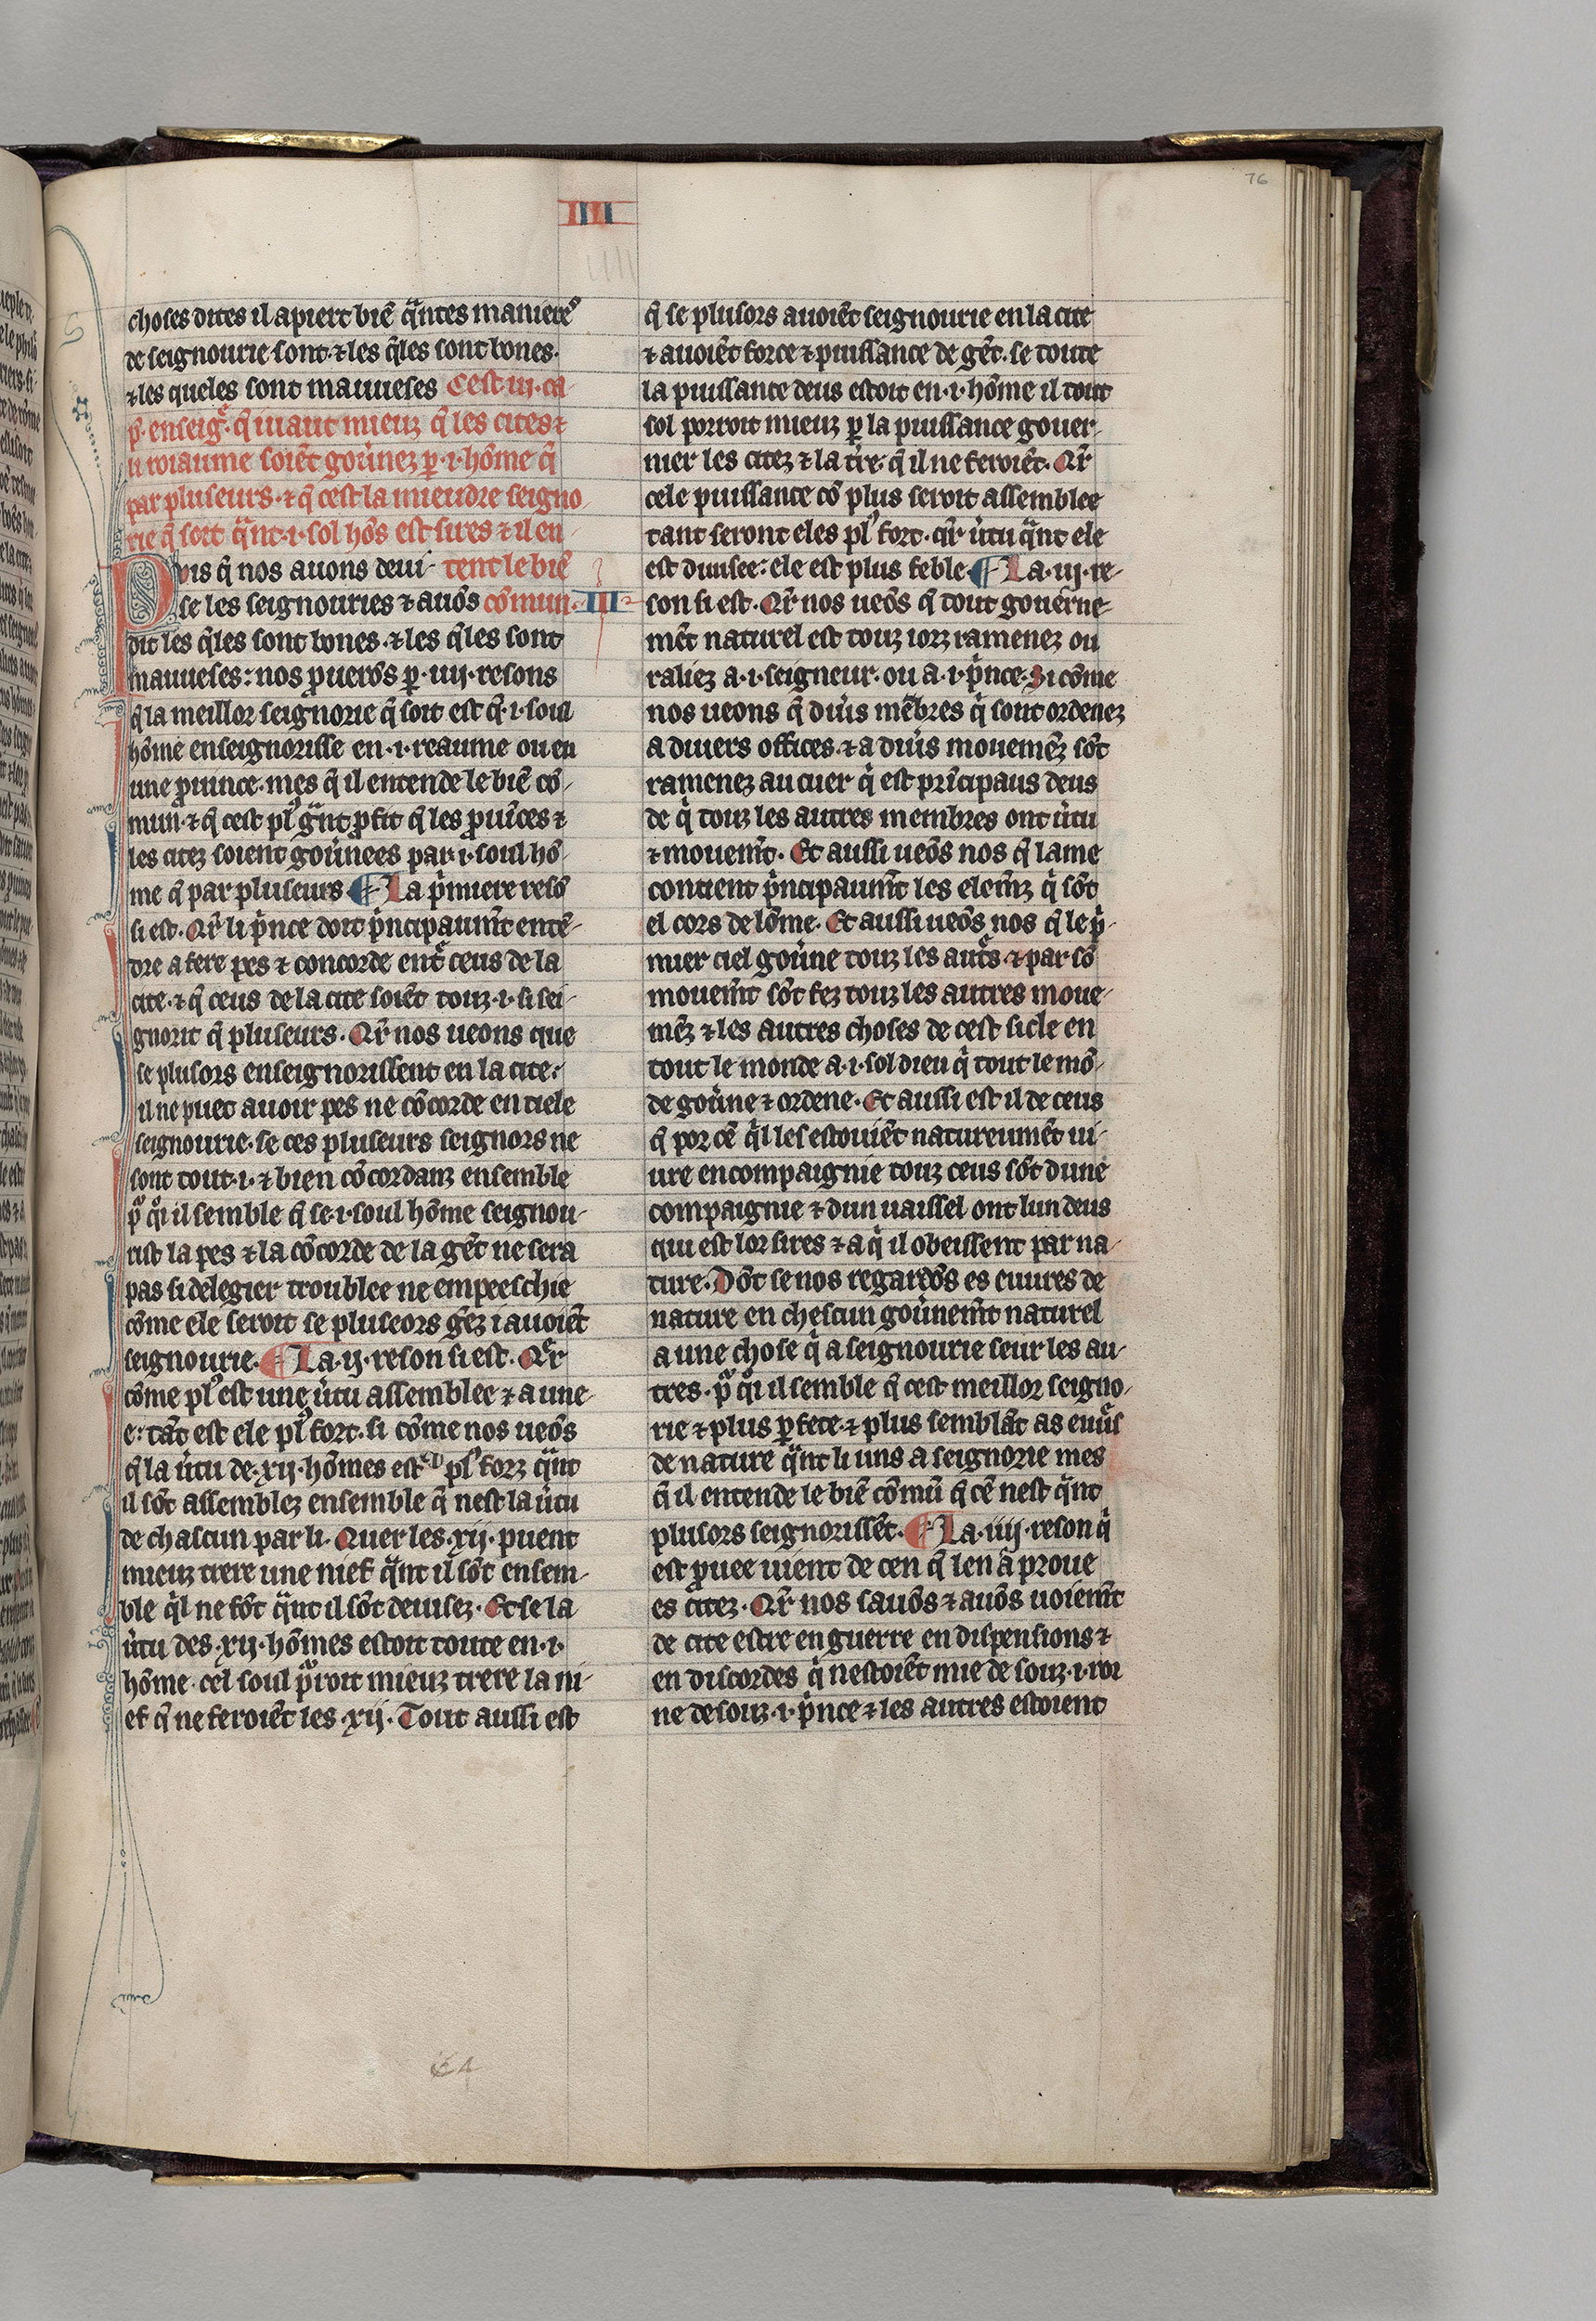 76
IIII
IIII
choses dites il apiert biẽ q̃ntes maniereˢ
de seignourie sont ⁊ les q̃les sont bones·
⁊ les queles sont mauueses Cest iij· ca-
p̃· enseig̃· q̃ uaut mieuz q̃ les cites ⁊
li roiaume soiẽt gou̾nez ꝑ ·i· hõme q̃
par pluseurs· ⁊ q̃ cest la mieudre seigno
rie q̃ soit q̃nt ·i· sol hõs est sires ⁊ il en-
tent le biẽ
cõmun·
Puis q̃ nos auons deui-
se les seignouries ⁊ auõs
III
dit les q̃les sont bones· ⁊ les q̃les sont
mauueses: nos ꝓuerõs ꝑ ·iiij· resons
q̃ la meillor seignorie q̃ soit est q̃ ·i· soul
hõme enseignorisse en ·i· reaume ou en
une ꝓuince· mes q̃ il entende le biẽ cõ-
mun· ⁊ q̃ cest plꝰ g̃nt ꝓfit q̃ les ꝓuĩces ⁊
les citez soient gou̾nees par ·i· soul hõ-
me q̃ par pluseurs ¶ La p̾miere resõ
si est· Q̃r li p̾nce doit p̾ncipaum̃t entẽ-
dre a fere pes ⁊ concorde ent̃ ceus de la
cite· ⁊ q̃ ceus de la cite soiẽt touz ·i· si sei-
gnorit q̃ pluseurs· Q̃r nos ueons que
se plusors enseignorissent en la cite:
il ne puet auoir pes ne cõcorde en tiele
seignourie· se ces pluseurs seignors ne
sont tout ·i· ⁊ bien cõcordanz ensemble
p̊ q̊i il semble q̃ se ·i· soul hõme seignou-
rist la pes ⁊ la cõcorde de la gẽt ne sera
pas si de legier troublee ne empeeschie
cõme ele seroit se pluseors gẽz i auoiẽt
seignourie· ¶ La ·ij· reson si est· Q̃r
cõme plꝰ est une u̾tu assemblee ⁊ a une-
e: tãt est ele plꝰ fort· si cõme nos ueõs
q̃ la u̾tu de ·xij· hõmes est plꝰ forz q̃nt
il sõt assemblez ensemble q̃ nest la u̾tu
de chascun par li· Quer les ·xij· puent
mieuz trere une nief q̃nt il sõt ensem-
ble q̃l ne fõt q̃nt il sõt deuisez· Et se la
u̾tu des ·xij· hõmes estoit toute en ·i·
hõme· cel soul p̊roit mieuz trere la ni-
ef q̃ ne feroiẽt les ·xij· Tout aussi est
q̃ se plusors auoiẽt seignourie en la cite
⁊ auoiẽt force ⁊ puissance de gẽt· se toute
la puissance deus estoit en ·i· hõme il tout
sol porroit mieuz ꝑ la puissance gouer-
ner les citez ⁊ la tr̃e· q̃ il ne feroiẽt· Q̃r
cele puissance cõ plus seroit assemblee
tant seront eles plꝰ fort· q̃r u̾tu q̃nt ele
est diuisee: ele est plus feble· ¶ La ·iij· re-
son si est· Q̃r nos ueõs q̃ tout gouerne-
mẽt naturel est touz iorz ramenez ou
raliez a ·i· seigneur· ou a ·i· p̾nce· Si cõme
nos ueons q̃ diu̾s mẽbres q̾ sont ordenez
a diuers offices· ⁊ a diu̾s mouemẽz sõt
ramenez au cuer q̾ est prĩcipaus deus
de q̾ touz les autres membres ont u̾tu
⁊ mouem̃t· Et aussi ueõs nos q̃ lame
contient p̾ncipaum̃t les elem̃z q̾ sõt
el cors de lõme· Et aussi ueõs nos q̃ le p̾-
mier ciel gou̾ne touz les aut̃s· ⁊ par sõ
mouem̃t sõt fez touz les autres moue-
mẽz ⁊ les autres choses de cest sicle en
tout le monde a ·i· sol dieu q̾ tout le mõ-
de gou̾ne ⁊ ordene· Et aussi est il de ceus
q̃ por cẽ q̾l les estouiẽt natureumẽt ui-
ure en compaignie touz ceus sõt dune
compaignie ⁊ dun uaissel ont lun deus
qui est lor sires ⁊ a q̾ il obeissent par na-
ture· Dõt se nos regardõs es euures de
nature en chescun gou̾nem̃t naturel
a une chose q̾ a seignourie seur les au-
tres· p̊ q̊i il semble q̃ cest meillor seigno-
rie ⁊ plus ꝑfete· ⁊ plus semblãt as euu̾s
de nature q̃nt li uns a seignorie mes
q̃ il entende le biẽ cõmũ q̃ cẽ nest q̃nt
plusors seignorissẽt· ¶ La ·iiij· reson q̾
est ꝓuee uient de cen q̃ len a proue
es citez· Q̃r nos sauõs ⁊ auõs uoiem̃t
de cite estre en guerre en dispensions ⁊
en discordes q̾ nestoiẽt mie de souz ·i· roi
ne de souz ·i· p̾nce ⁊ les autres estoient